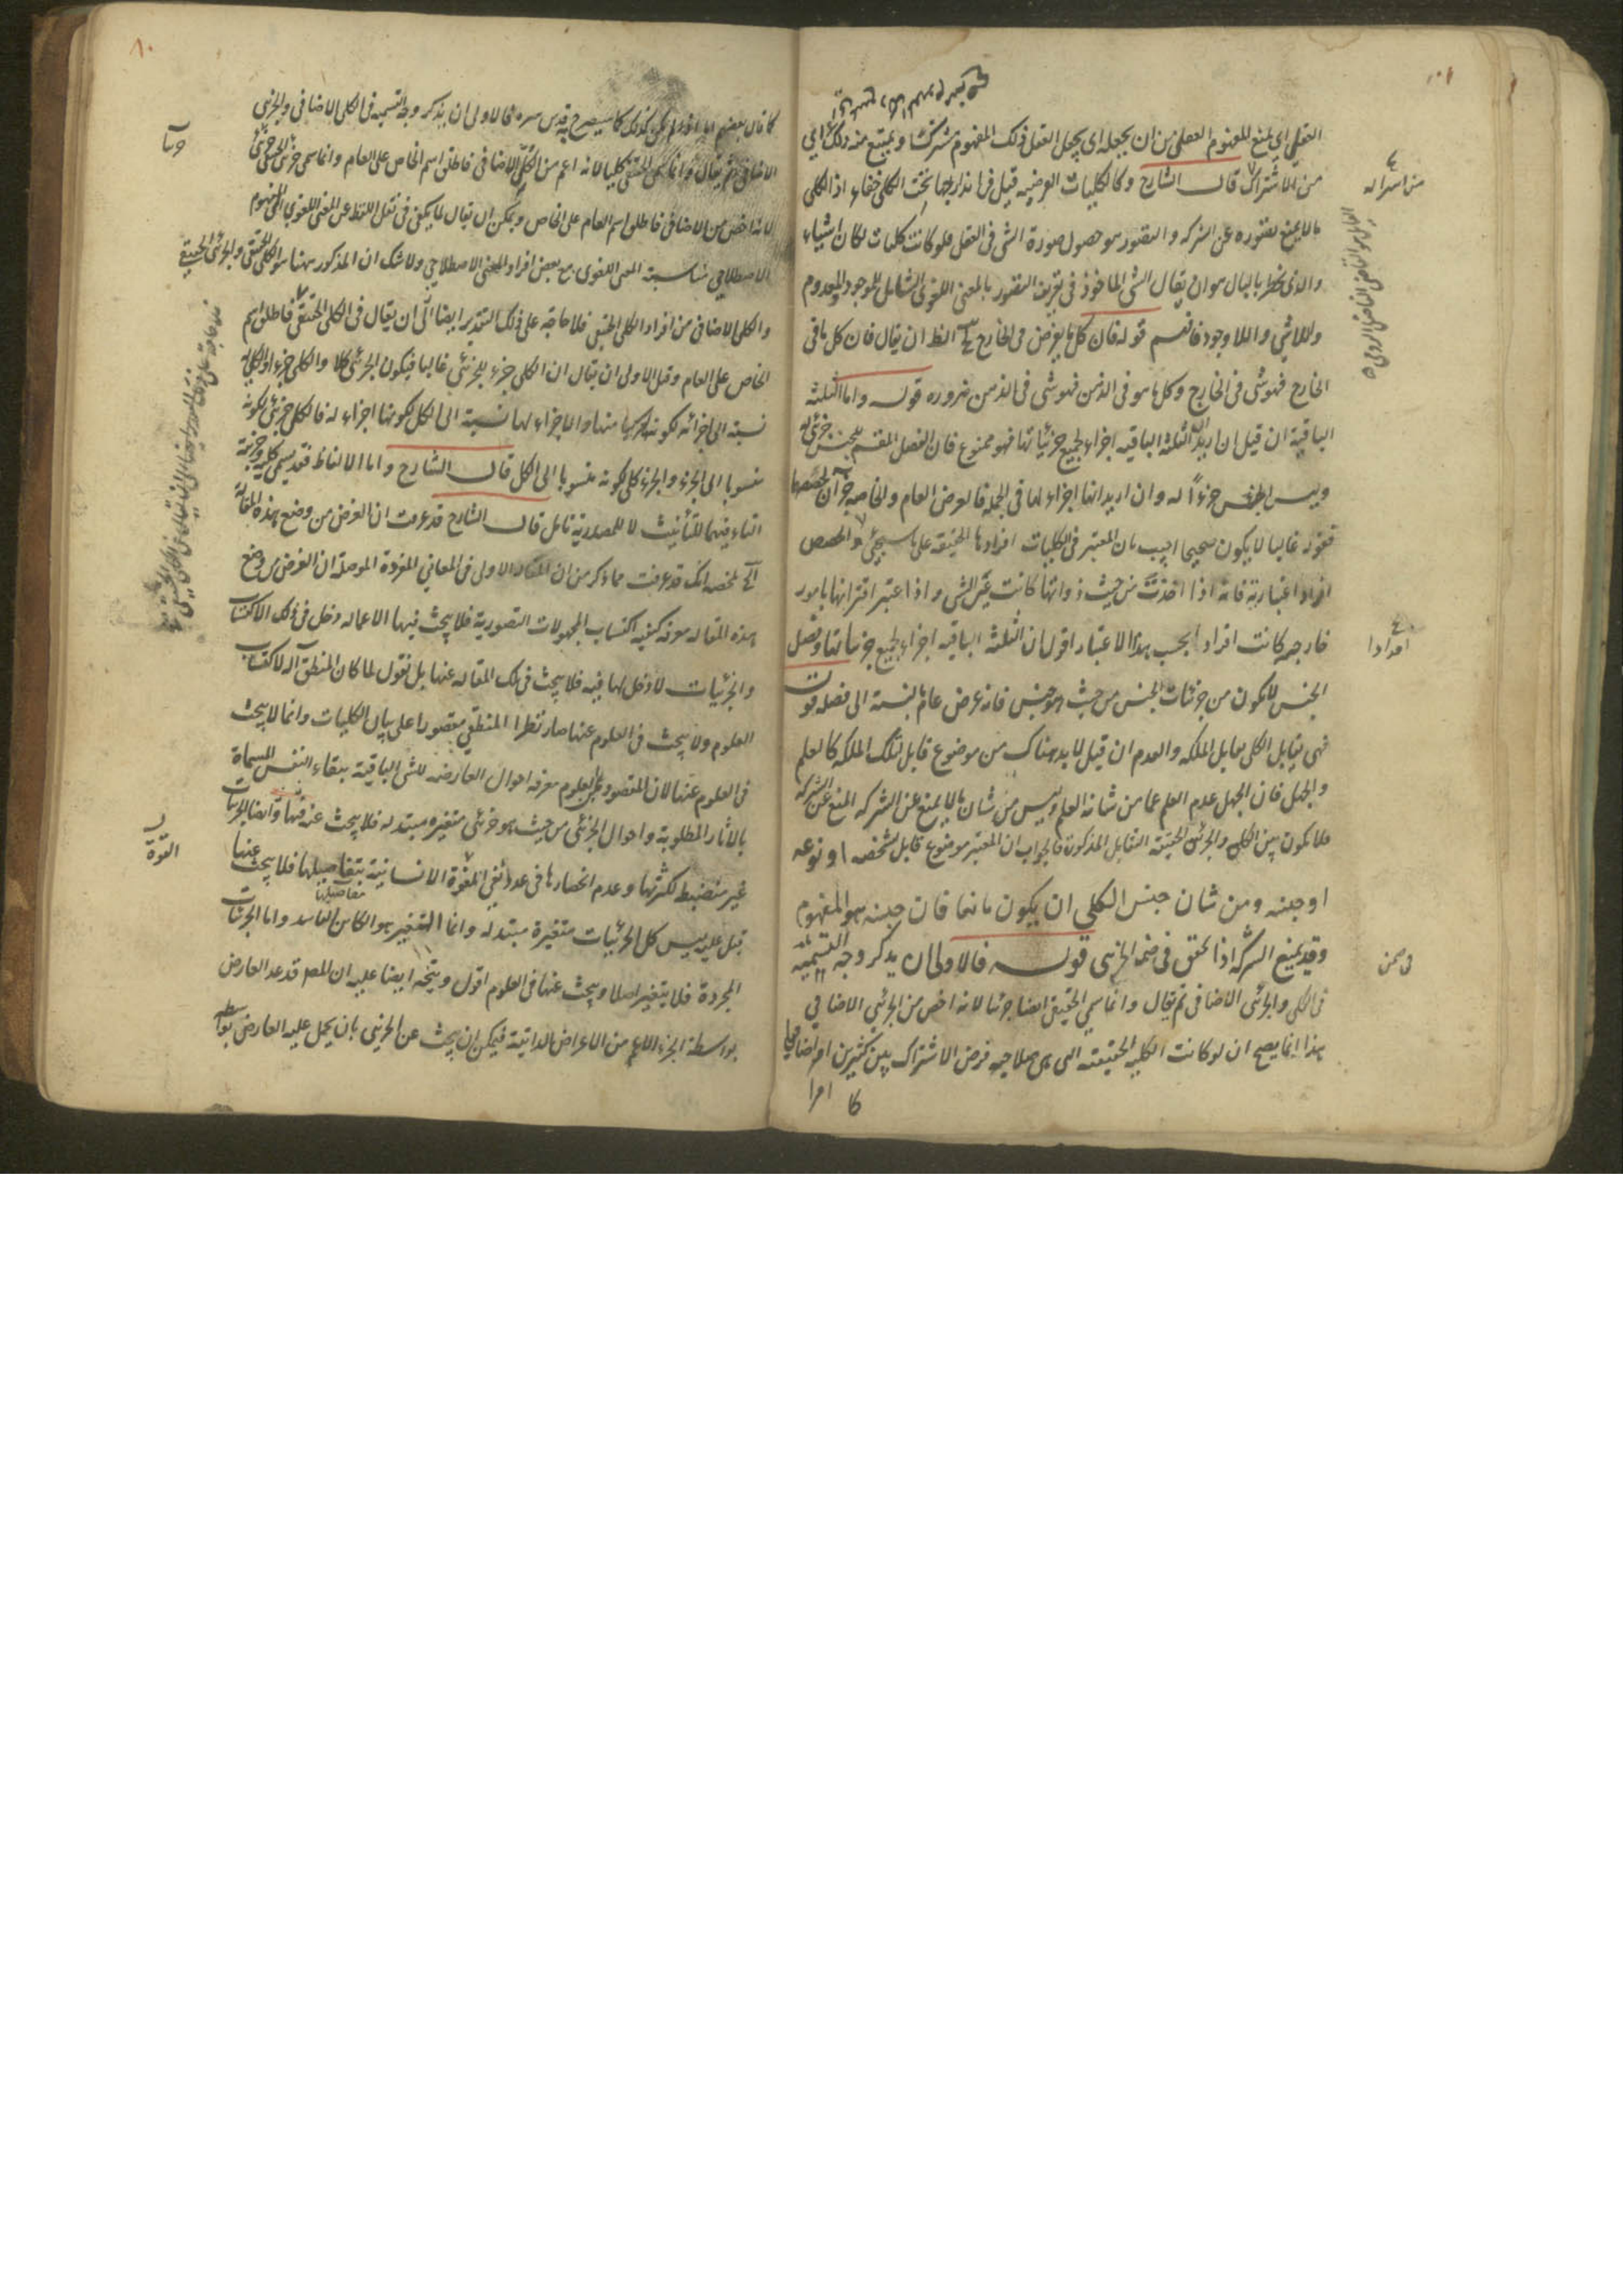 العقلي اى يمنع المفهوم العقلى من ان يجعله اى يجعل العقل ذلك المفهوم مشتركا و يمتنع منه ذلك اى
من الاشتراك قال الشارح وكالكليات الفرضيه قيل فى اندراجها تحت الكلى خفاء اذ الكلى
ما لا يمنع تصوره عن الشركه و التصور هو حصول صورة الشى فى العقل فلو كانت كليات لكان اشياء
والذى يخطر بالبال هو ان يقال الشى الماخوذ فى تعريف التصور بالمعنى اللغوى الشامل للموجود والمعدوم
واللاشى و اللاوجود فافهم قوله فان كل ما يفرض فى الخارج الخ الظ ان يقال فان كل ما فى
الخارج فهو شى فى الخارج وكل ما هو فى الذهن فهو شى فى الذهن ضروره قوله واما الثلثه
الباقية ان قيل ان اريد ان الثلثه الباقيه اجزاء لجميع جزئياتها فهو ممنوع فان الفصل المقسم للجنس جزئى له
وليس الجنس جزءا له وان اريد انها اجزاء لها فى الجمله فالعرض العام والخاصه جزآن لحصصها
فقوله غالبا لا يكون صحيحا اجيب بان المعتبر فى الكليات افرادها الحقيقه على ما سيجئ والحصص
افراد اعتباريه فانه اذا اخذت من حيث ذواتها كانت عين الشى و اذا اعتبر اقترانها بامور
خارجيه كانت افرادا بحسب هذا الاعتبار اقول ان الثلثه الباقيه اجزاء لجميع جزئياتها وفصل
الجنس لا يكون من جزئيات الجنس من حيث هو جنس فانه عرض عام بالنسبة الى فصله قوله
فهى تقابل الكلى تقابل الملكه والعدم ان قيل لا بد هناك من موضوع قابل لتلك الملكه كالعلم
والجهل فان الجهل عدم العلم عما من شانه العلم وليس من شان ما لا يمنع عن الشركه المنع عن الشركه
فلا يكون بين الكلى والجزئى الحقيقيه التقابل المذكور فالجواب ان المعتبر موضوع قابل بشخصه او نوعه
او جنسه ومن شان جنس الكلى ان يكون مانعا فان جنسه هو المفهوم
وقد يمنع الشركه اذا تحقق فى ضمن الجزئى قوله فالاولى ان يذكر وجه التسميه
فى الكلى والجزئى الاضافى ثم يقال وانما سمى الحقيقى ايضا جزئيا لانه اخص من الجزئى الاضافى
هذا انما يصح ان لو كانت الكليه الحقيقيه التى هى صلاحيه فرض الاشتراك بين كثيرين امرا اضافيا
كا امرا
فى ضمن
افرادا
كما قال بعضهم اما اذا لم يكن كذلك كما سيصرح به قدس سره فالاولى ان يذكر وجه التسميه فى الكلى الاضافى والجزئى
الاضافى ثم يقال وانما سمى الحقيقى كليا لانه اعم من الكلى الاضافى فاطلق اسم الخاص على العام وانما سمى جزئى الحقيقى جزئى
لانه اخص من الاضافى فاطلق اسم العام على الخاص ويمكن ان يقال لما يكفى فى نقل اللفظ عن المعنى اللغوى الى المفهوم
الاصطلاحى مناسبة المعنى اللغوى مع بعض افراد المعنى الاصطلاحى ولا شك ان المذكور ههنا هو الكلى الحقيقى والجزئى الحقيقى
والكلى الاضافى من افراد الكلى الحقيقى فلا حاجه على ذلك التقدير ايضا الى ان يقال فى الكلى الحقيقى فاطلق اسم
الخاص على العام وقيل الاولى ان يقال ان الكلى جزء للجزئى غالبا فيكون الجزئى كلا والكلى جزءا وللكل
نسبه الى اجزائه لكونه مركبا منها والاجزاء لها نسبة الى الكل لكونها اجزاء له فالكل جزئى لكونه
منسوبا الى الجزء والجزء كلى لكونه منسوبا الى الكل قال الشارح واما الالفاظ فقد يسمى كلية وجزئية
التاء فيهما للتأنيث لا للمصدرية تامل قال الشارح قد عرفت ان الغرض من وضع هذه المقالة
الخ ملخصه انك قد عرفت مما ذكر من ان المقاله الاولى فى المعانى المفردة الموصلة ان الغرض من وضع
هذه المقاله معرفه كيفيه اكتساب المجهولات التصورية فلا يبحث فيها الا عما له دخل فى ذلك الاكتساب
والجزئيات لا دخل لها فيه فلا يبحث فى تلك المقاله عنها بل نقول لما كان المنطق آله لاكتساب
العلوم ولا يبحث فى العلوم عنها صار نظر المنطقى مقصورا على بيان الكليات وانما لا يبحث
فى العلوم عنها لان المقصود من العلوم معرفه احوال العارضه للشى الباقية ببقاء النفس المسماة
بالاثار المطلوبة واحوال الجزئى من حيث هو جزئى متغيره متبدله فلا يبحث عنه فيها وايضا الجزئيات
غير منضبط لكثرتها وعدم انحصارها فى عدد تفى القوة الانسانية بتفاصيلها فلا يبحث عنها
قيل عليه ليس كل الجزئيات متغيرة متبدله وانما المتغير هو الكائن الفاسد واما الجزئيات
المجردة فلا يتغير اصلا ويبحث عنها فى العلوم اقول ويتجه ايضا عليه ان المصـ قد عد العارض
بواسطة الجزء الاعم من الاعراض الذاتية فيمكن ان يبحث عن الجزئى بان يحمل عليه العارض بواسطة
القوة